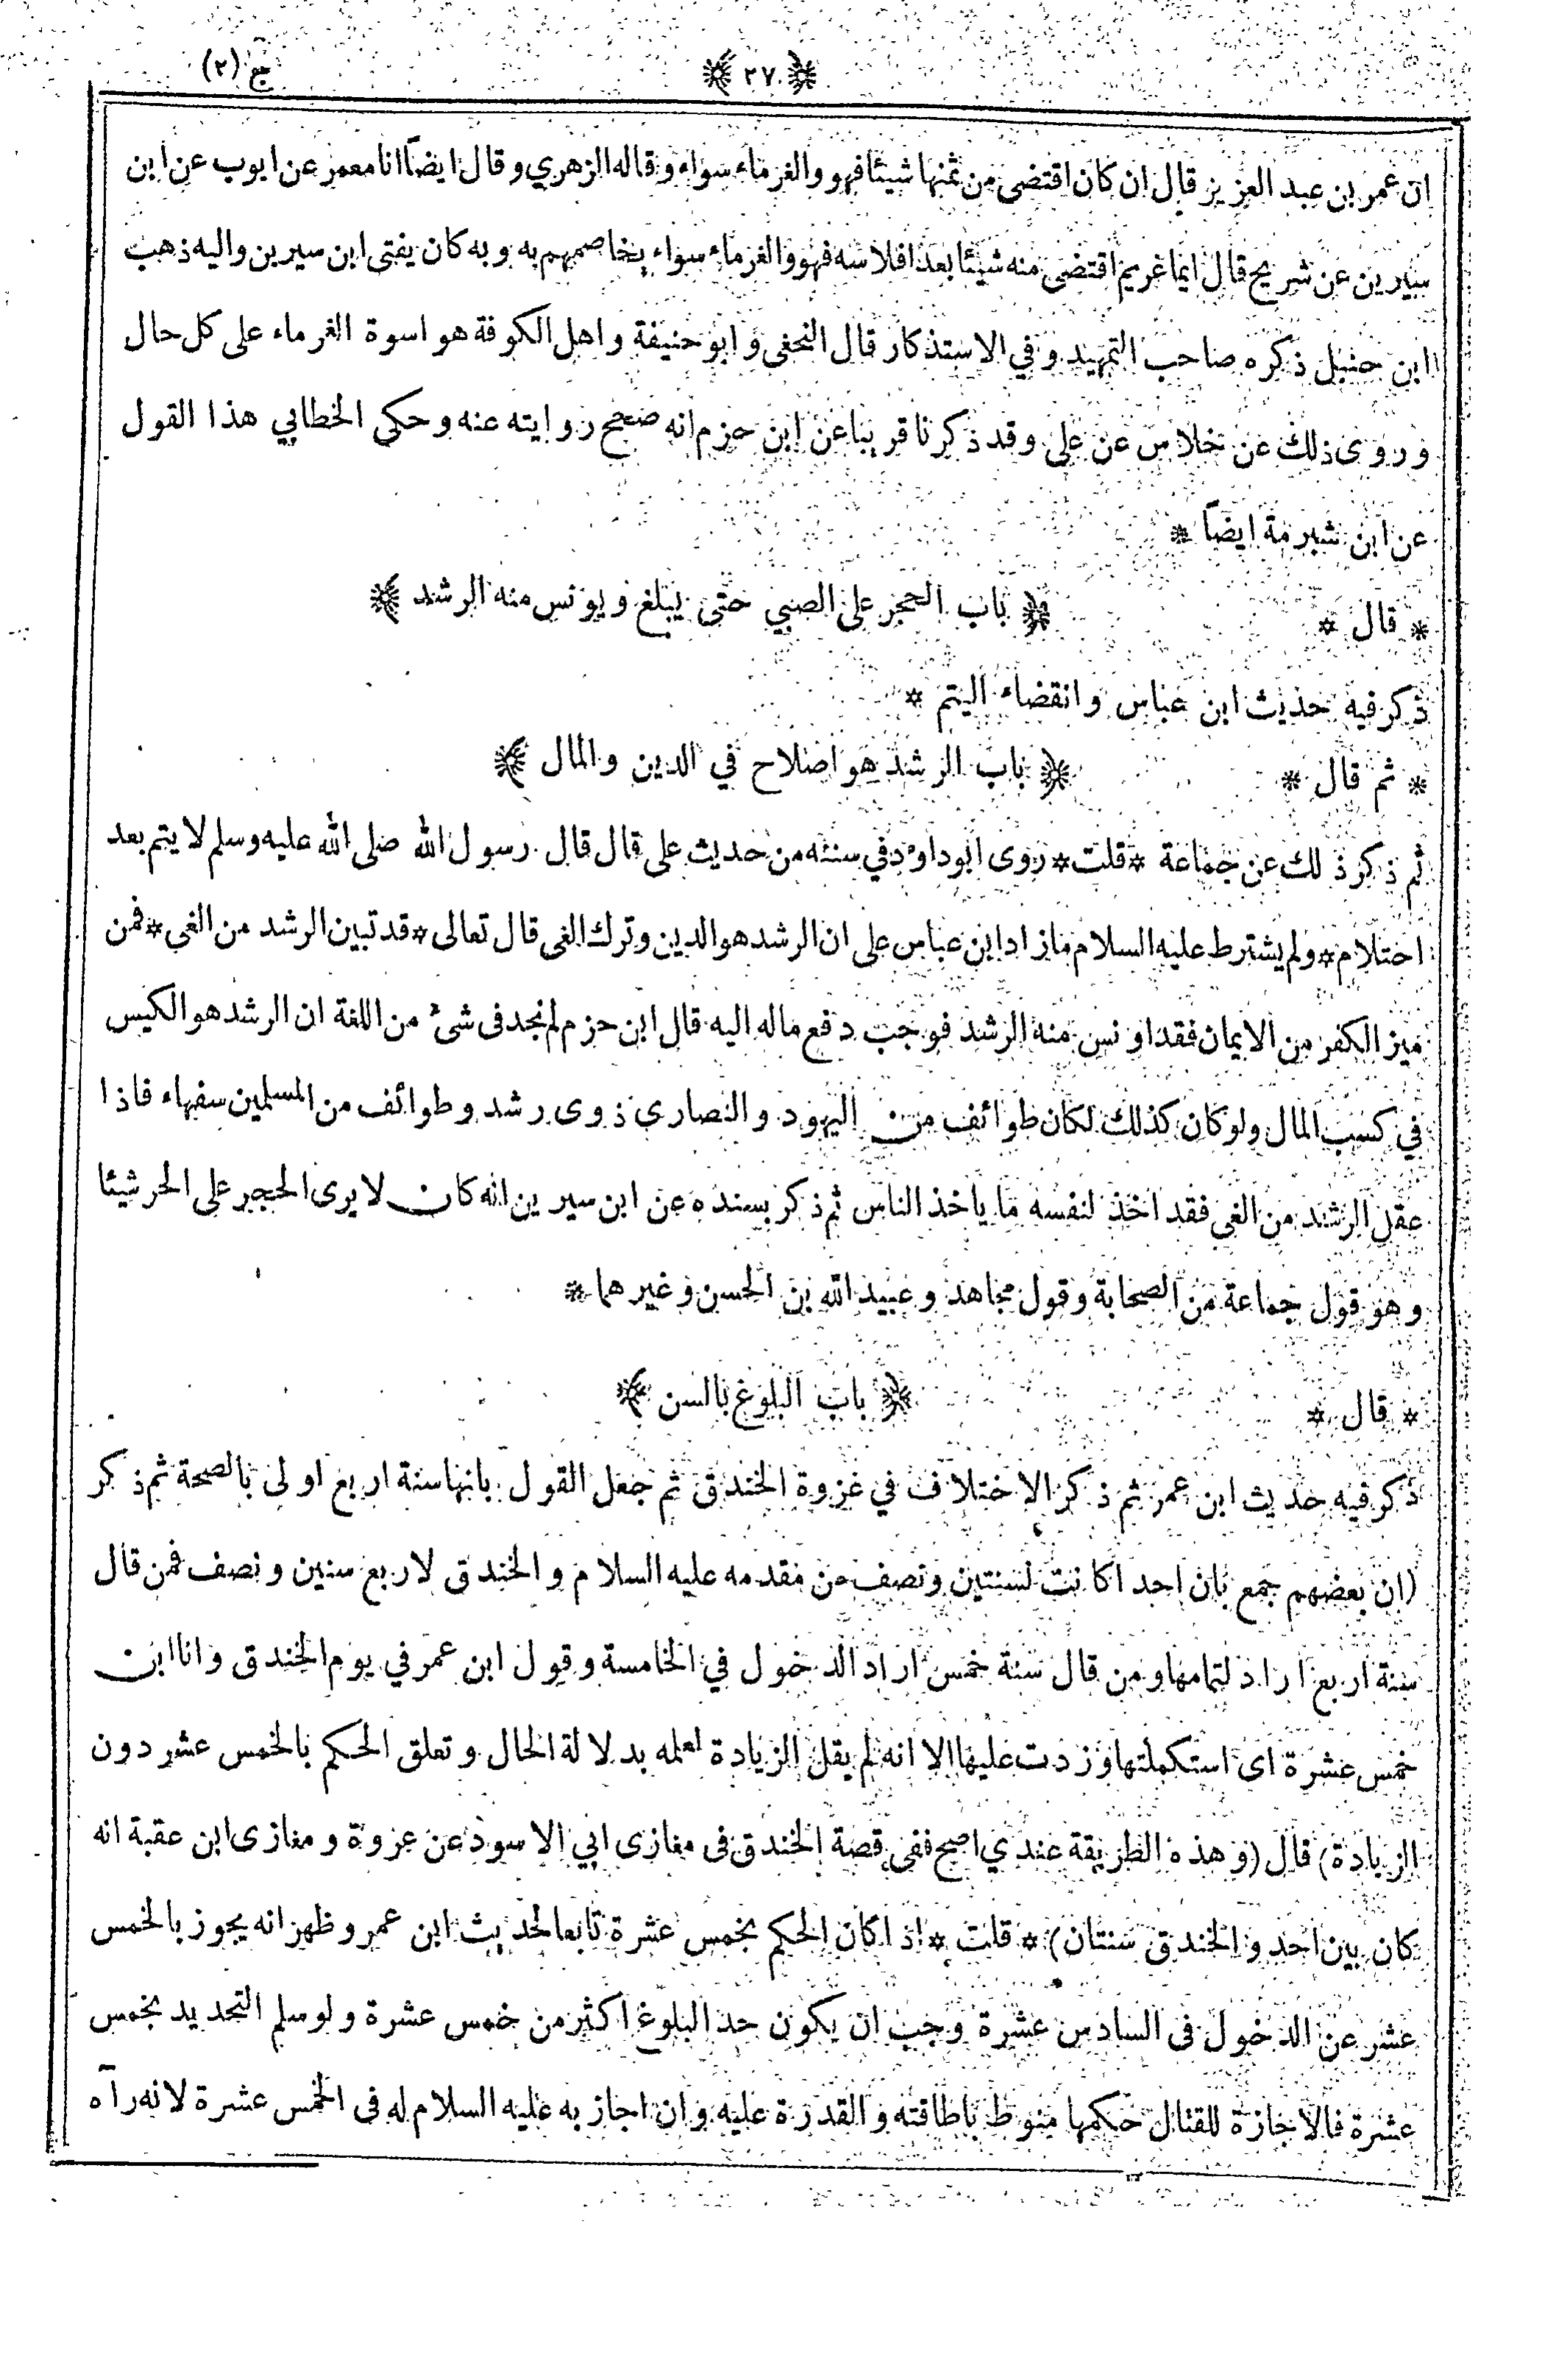 ﴿ ٢٧ ﴾ ج (٢)
ان عمر بن عبد العزيز قال ان كان اقتضى من ثمنها شيئا فهو والغرماء سواء وقاله الزهري وقال ايضاً انا معمر عن ايوب عن ابن
سيرين عن شريح قال ايما غريم اقتضى منه شيئا بعد افلاسه فهو والغرماء سواء يخاصمهم به وبه كان يفتى ابن سيرين واليه ذهب
ابن حنبل ذكره صاحب التمهيد وفي الاستذكار قال النخعى وابو حنيفة واهل الكوفة هو اسوة الغرماء على كل حال
وروى ذلك عن خلاس عن على وقد ذكرنا قريبا عن ابن حزم انه صحيح روايته عنه وحكى الخطابي هذا القول
عن ابن شبرمة ايضاً *
* قال * ﴿ باب الحجر على الصبي حتى يبلغ ويونس منه الرشد ﴾
ذكر فيه حديث ابن عباس وانقضاء اليتم *
* ثم قال * ﴿ باب الرشد هو اصلاح في الدين والمال ﴾
ثم ذكر ذلك عن جماعة * قلت * روى ابوداؤد في سننه من حديث على قال قال رسول الله صلى الله عليه وسلم لا يتم بعد
احتلام * ولم يشترط عليه السلام مازاد ابن عباس على ان الرشد هو الدين وترك الغى قال تعالى * قد تبين الرشد من الغي * فمن
ميز الكفر من الايمان فقد اونس منه الرشد فوجب دفع ماله اليه قال ابن حزم لم نجد فى شئ من اللغة ان الرشد هو الكيس
في كسب المال ولو كان كذلك لكان طوائف من اليهود والنصارى ذوى رشد وطوائف من المسلمين سفهاء فاذا
عقل الرشد من الغي فقد اخذ لنفسه ما ياخذ الناس ثم ذكر بسنده عن ابن سيرين انه كان لا يرى الحجر على الحر شيئا
وهو قول جماعة من الصحابة وقول مجاهد وعبيد الله بن الحسن وغيرهما *
* قال * ﴿ باب البلوغ بالسن ﴾
ذكر فيه حديث ابن عمر ثم ذكر الاختلاف في غزوة الخندق ثم جعل القول بانها سنة اربع اولى بالصحة ثم ذكر
(ان بعضهم جمع بان احدا كانت لسنتين ونصف من مقدمه عليه السلام والخندق لاربع سنين ونصف فمن قال
سنة اربع اراد لتمامها ومن قال سنة خمس اراد الدخول في الخامسة وقول ابن عمر في يوم الخندق وانا ابن
خمس عشرة اى استكملتها وزدت عليها الا انه لم يقل الزيادة لعلمه بدلالة الحال وتعلق الحكم بالخمس عشر دون
الزيادة) قال (وهذه الطريقة عندي اصح ففى قصة الخندق فى مغازى ابي الاسود عن عروة ومغازى ابن عقبة انه
كان بين احد والخندق سنتان) * قلت * اذا كان الحكم بخمس عشرة تابعا لحديث ابن عمر وظهر انه يجوز بالخمس
عشر عن الدخول فى السادس عشرة وجب ان يكون حد البلوغ اكثر من خمس عشرة ولو سلم التحديد بخمس
عشرة فالاجازة للقتال حكمها منوط باطاقته والقدرة عليه وان اجاز به عليه السلام له فى الخمس عشرة لانه رآه